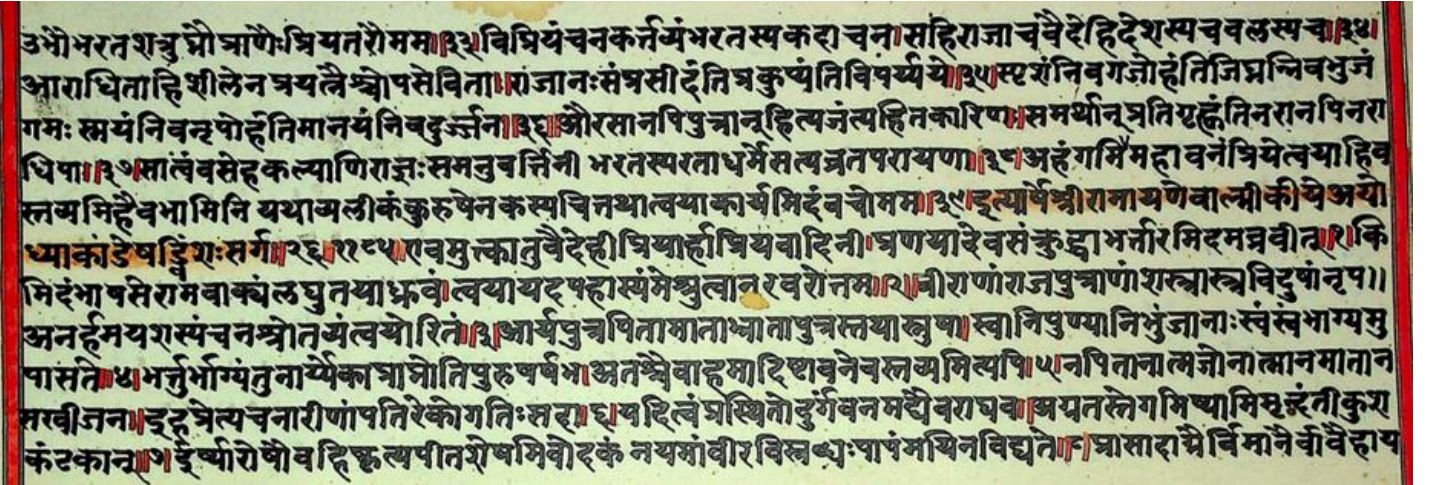 उभौभरतशत्रुघ्नौप्राणैःप्रियतरौमम॥३३॥विप्रियंचनकर्त्तव्यंभरतस्यकदाचन॥सहिराजाचवैदेहिदेशस्यचबलस्यच॥३४॥
आराधिताहिशीलेनप्रयत्नैश्चोपसेविता॥राजानःसंप्रसीदंतिप्रकुप्यंतिविपर्य्यये॥३५॥स्पृशंनिवगजोहंतिजिघ्रन्निवभुजं
गमः स्मयंनिवनृपोर्हंतिमानयंनिवदुर्ज्जन॥३६॥औरसानपिपुत्रान्हित्यजंत्यहितकारिण॥समर्थान्प्रतिगृह्णंतिनरानपिनरा
धिपा॥३७॥सात्वंवसेहकल्याणिराज्ञःसमनुवर्त्तिनी भरतस्यरताधर्मेसत्यव्रतपरायणा॥३८॥अहंगमिमहावनंप्रियेत्वयाहिव
स्तव्यमिहैवभामिनि यथाव्यलीकंकुरुषेनकस्यचित्तथात्वयाकार्यमिदंवचोमम॥३९॥इत्यार्षेश्रीरामायणेवाल्मीकीयेअयो
ध्याकांडेषड्विंशःसर्ग॥२६॥११८५॥एवमुक्तातुवैदेहीप्रियार्हाप्रियवादिनी॥प्रणयादेवसंक्रुद्धाभर्त्तारमिदमब्रवीत्॥१॥कि
मिदंभाषसेरामवाक्यंलघुतयाध्रुवं॥त्वयायदपहास्यंमेश्रुत्वानरवरोत्तम॥२॥वीराणांराजपुत्राणांशस्त्रास्त्रविदुषांनृप॥
अनर्हमयशस्यंचनश्रोतव्यंत्वयेरितं॥३॥आर्यपुत्रपितामाताभ्रातापुत्रस्तथास्नुषा॥स्वानिपुण्यानिभुंजानाःस्वंस्वंभाग्यमु
पासते॥४॥भर्त्तुर्भाग्यंतुनार्य्येकाप्राप्नोतिपुरुषर्षभ॥अतश्चैवाहमादिष्टावनेवस्तव्यमित्यपि॥५॥नपितानात्मजोनात्मानमातान
मखीजन॥इहप्रेत्यचनारीणांपतिरेकोगतिःसदा॥६॥यदित्वंप्रस्थितोदुर्गवनमद्यैवराघव॥अग्रतस्तेगमिष्यामिमृद्नंतीकुश
कंटकान्॥७॥ईर्ष्यारोषौवहिष्कृत्यपीतशेषमिवोदकं नयमांवीरविस्रब्धःपापंमयिनविद्यते॥८॥प्रासादाग्रैर्विमानैर्वावैहाय